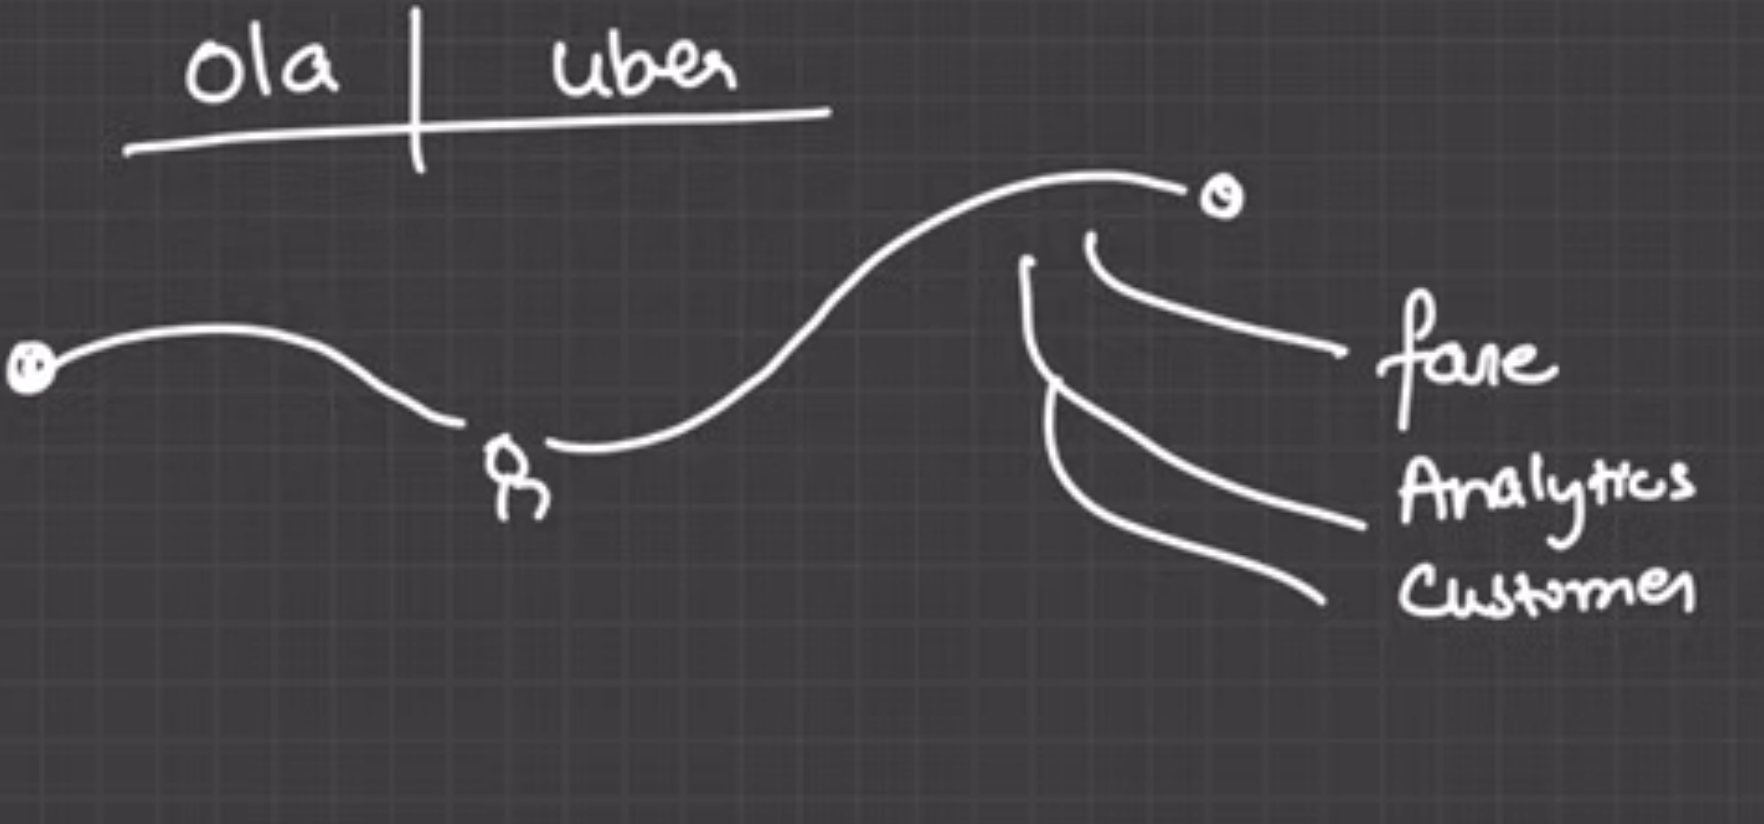 Ola | Uber
fare
Analytics
Customer